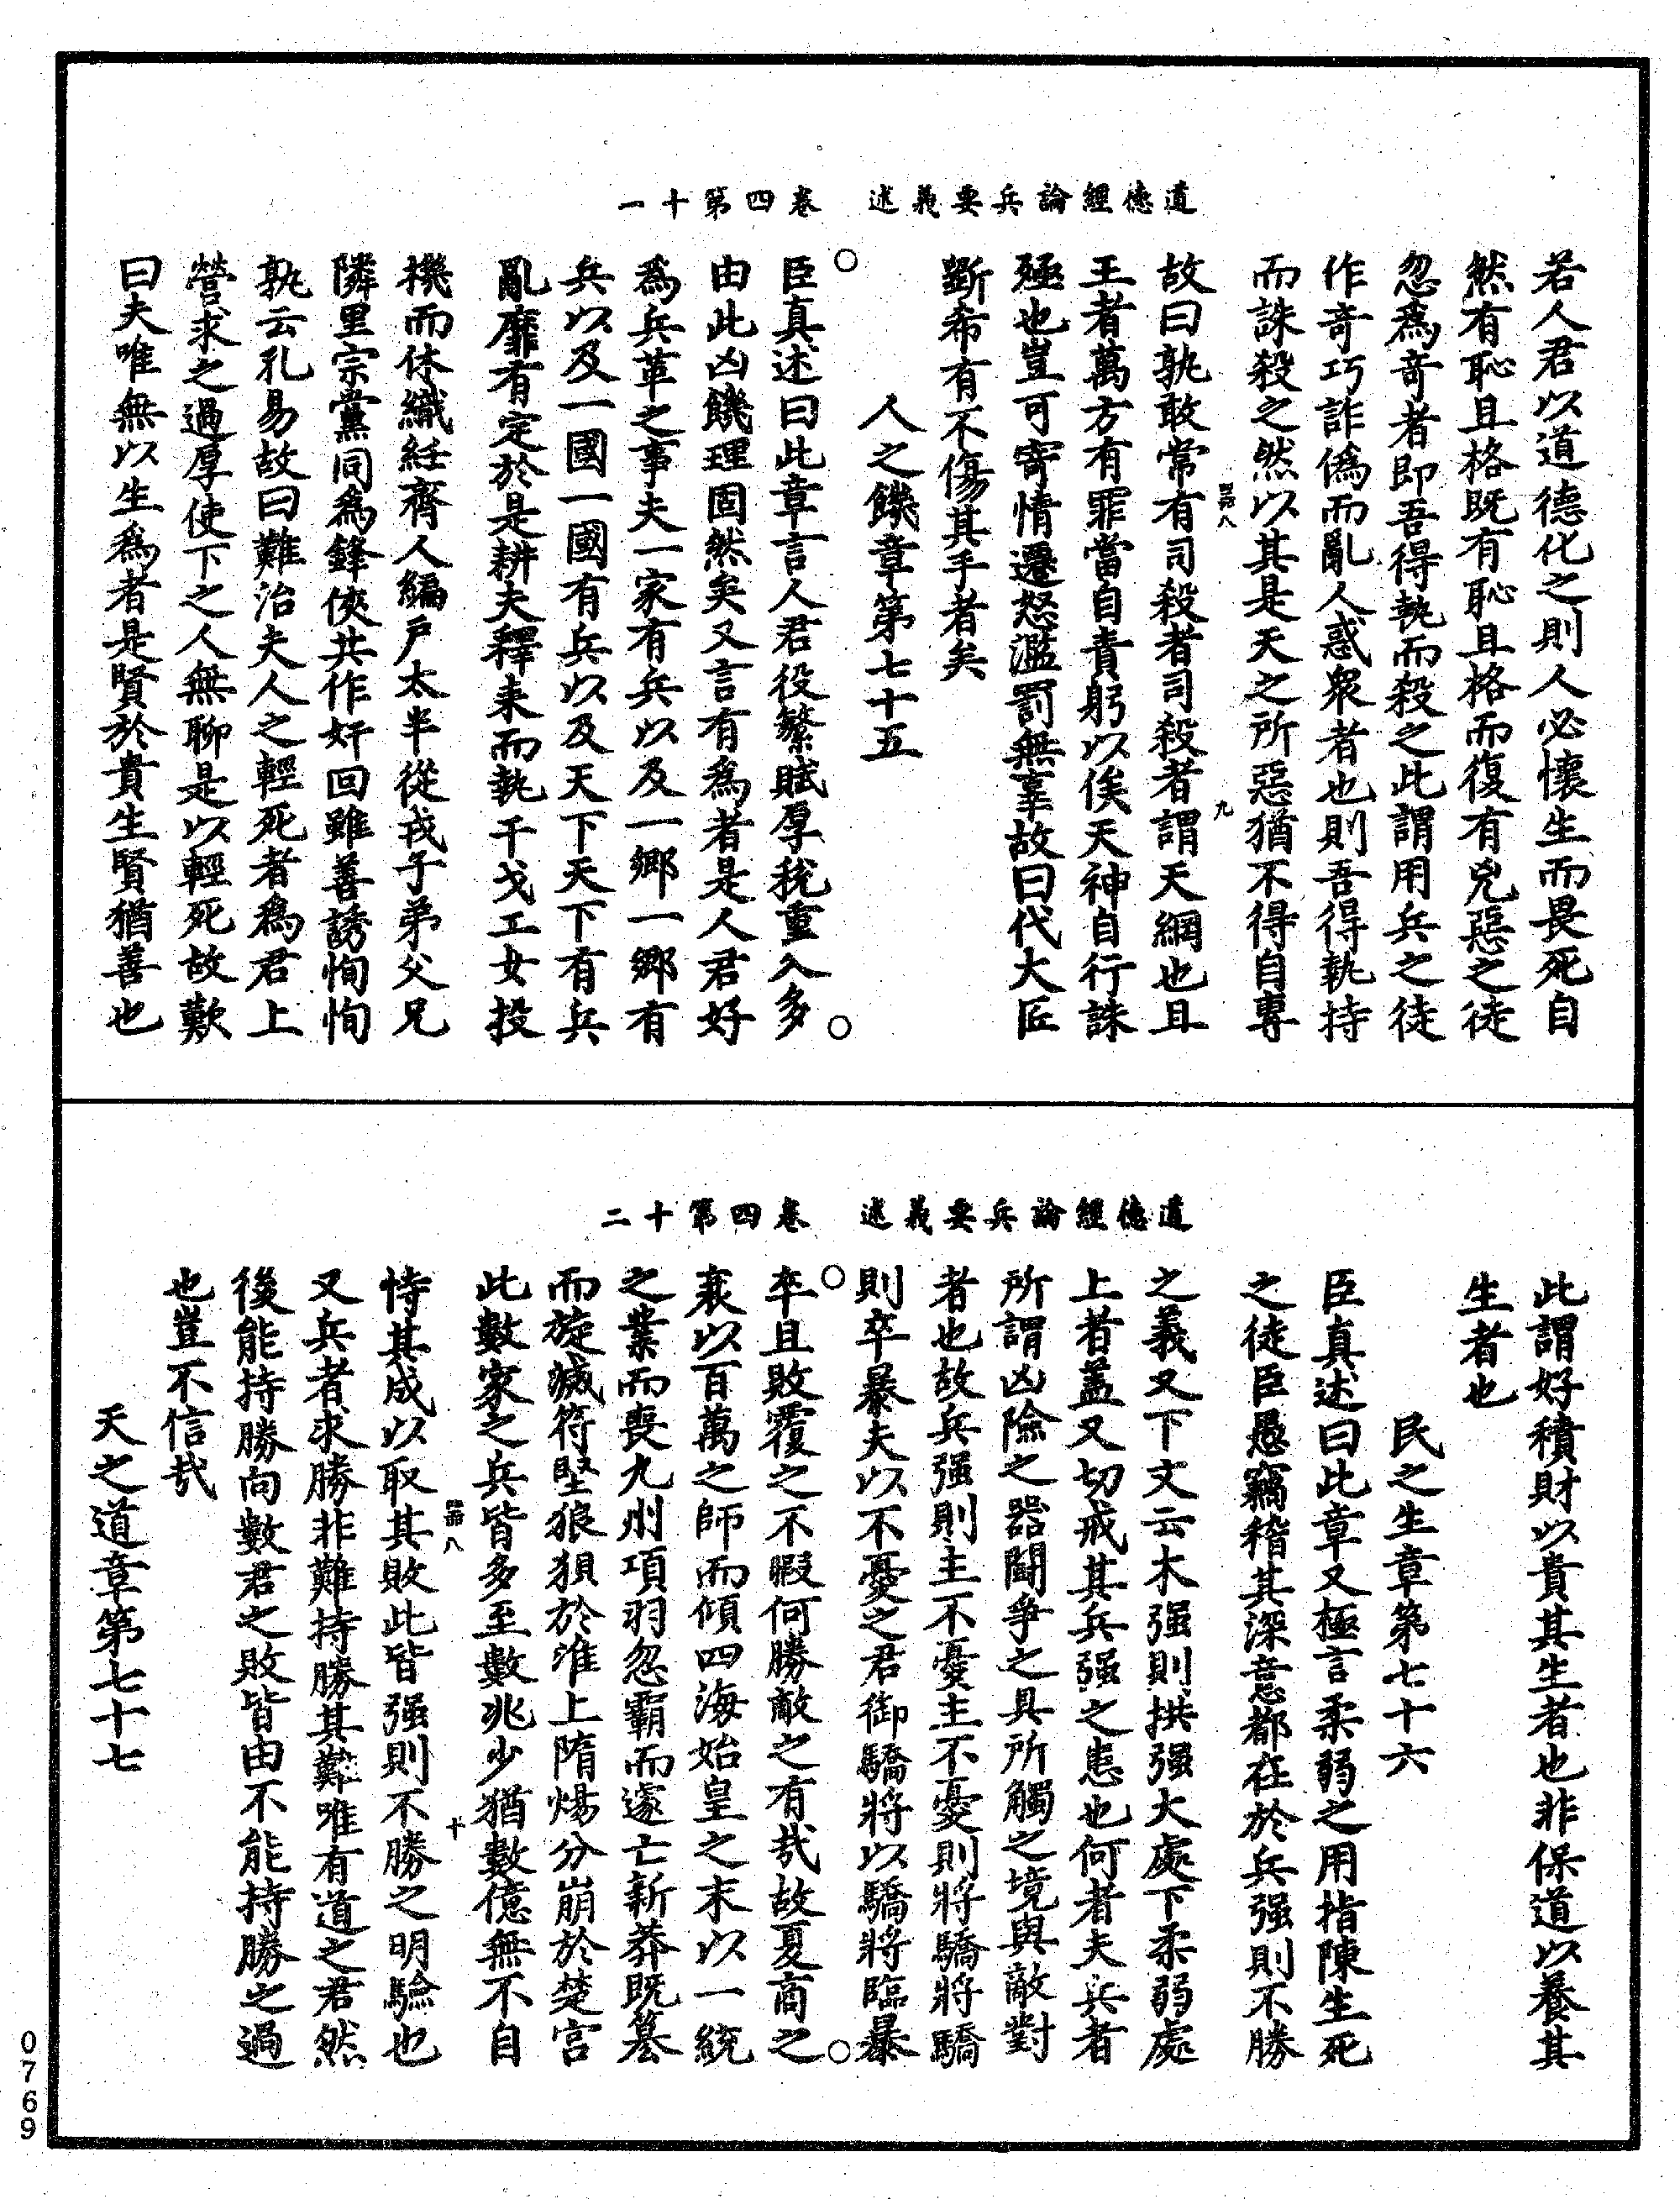 道德經論兵要義述　卷四第十一
若人君以道德化之則人必懷生而畏死自
然有恥且格既有恥且格而復有兇惡之徒
忽爲竒者即吾得執而殺之此謂用兵之徒
作竒巧詐僞而亂人惑衆者也則吾得執持
而誅殺之然以其是天之所惡猶不得自專
故曰孰敢常有司殺者司殺者謂天網也且
王者萬方有罪當自責躬以俟天神自行誅
殛也豈可寄情遷怒濫罰無辜故曰代大匠
斲希有不傷其手者矣
人之饑章第七十五
臣真述曰此章言人君役繁賦厚稅重入多
由此凶饑理固然矣又言有爲者是人君好
爲兵革之事夫一家有兵以及一鄉一鄉有
兵以及一國一國有兵以及天下天下有兵
亂靡有定於是耕夫釋耒而執干戈工女投
機而休織紝齊人編戶太半從戎子弟父兄
隣里宗黨同爲鋒俠共作奸回雖善誘恂恂
孰云孔易故曰難治夫人之輕死者爲君上
營求之過厚使下之人無聊是以輕死故歎
曰夫唯無以生爲者是賢於貴生賢猶善也
四命八
九
道德經論兵要義述　卷四第十二
此謂好積財以貴其生者也非保道以養其
生者也
民之生章第七十六
臣真述曰此章又極言柔弱之用指陳生死
之徒臣愚竊稽其深意都在於兵强則不勝
之義又下文云木强則拱强大處下柔弱處
上者蓋又切戒其兵强之患也何者夫兵者
所謂凶險之器鬪爭之具所觸之境與敵對
者也故兵强則主不憂主不憂則將驕將驕
則卒暴夫以不憂之君御驕將以驕將臨暴
卒且敗覆之不暇何勝敵之有哉故夏商之
衰以百萬之師而傾四海始皇之末以一統
之業而喪九州項羽忽霸而遽亡新莽既篡
而旋滅符堅狼狽於淮上隋煬分崩於楚宮
此數家之兵皆多至數兆少猶數億無不自
恃其成以取其敗此皆强則不勝之明驗也
又兵者求勝非難持勝其難唯有道之君然
後能持勝向數君之敗皆由不能持勝之過
也豈不信哉
天之道章第七十七
四命八
十
0769